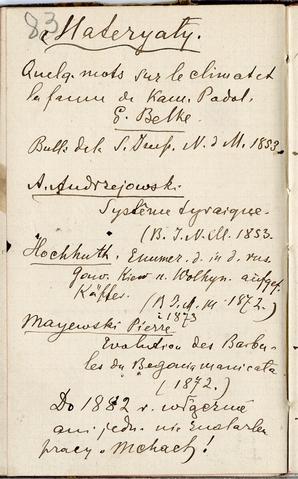 83
Materyały.
Quelq. mots sur le climat et
la faune de Kam. Podol.
G. Belke.
Bull. de la S. Imp. N. d M. 1853.
A. Andrzejowski.
Système tyraique.
(B. I. N. M. 1853.
Hochhuth. Enumer. d. in d. rus.
Gouv. Kiew u. Wolhyn. aufgef.
Käffer. (B I. N. M 1872.)
i 1873
Mayewski Pierre
Evolution des Barbu-
les du Begonia manicata
(1872.)
Do 1882 r. włącznie
ani jedn. nie
pracy o Mchach!